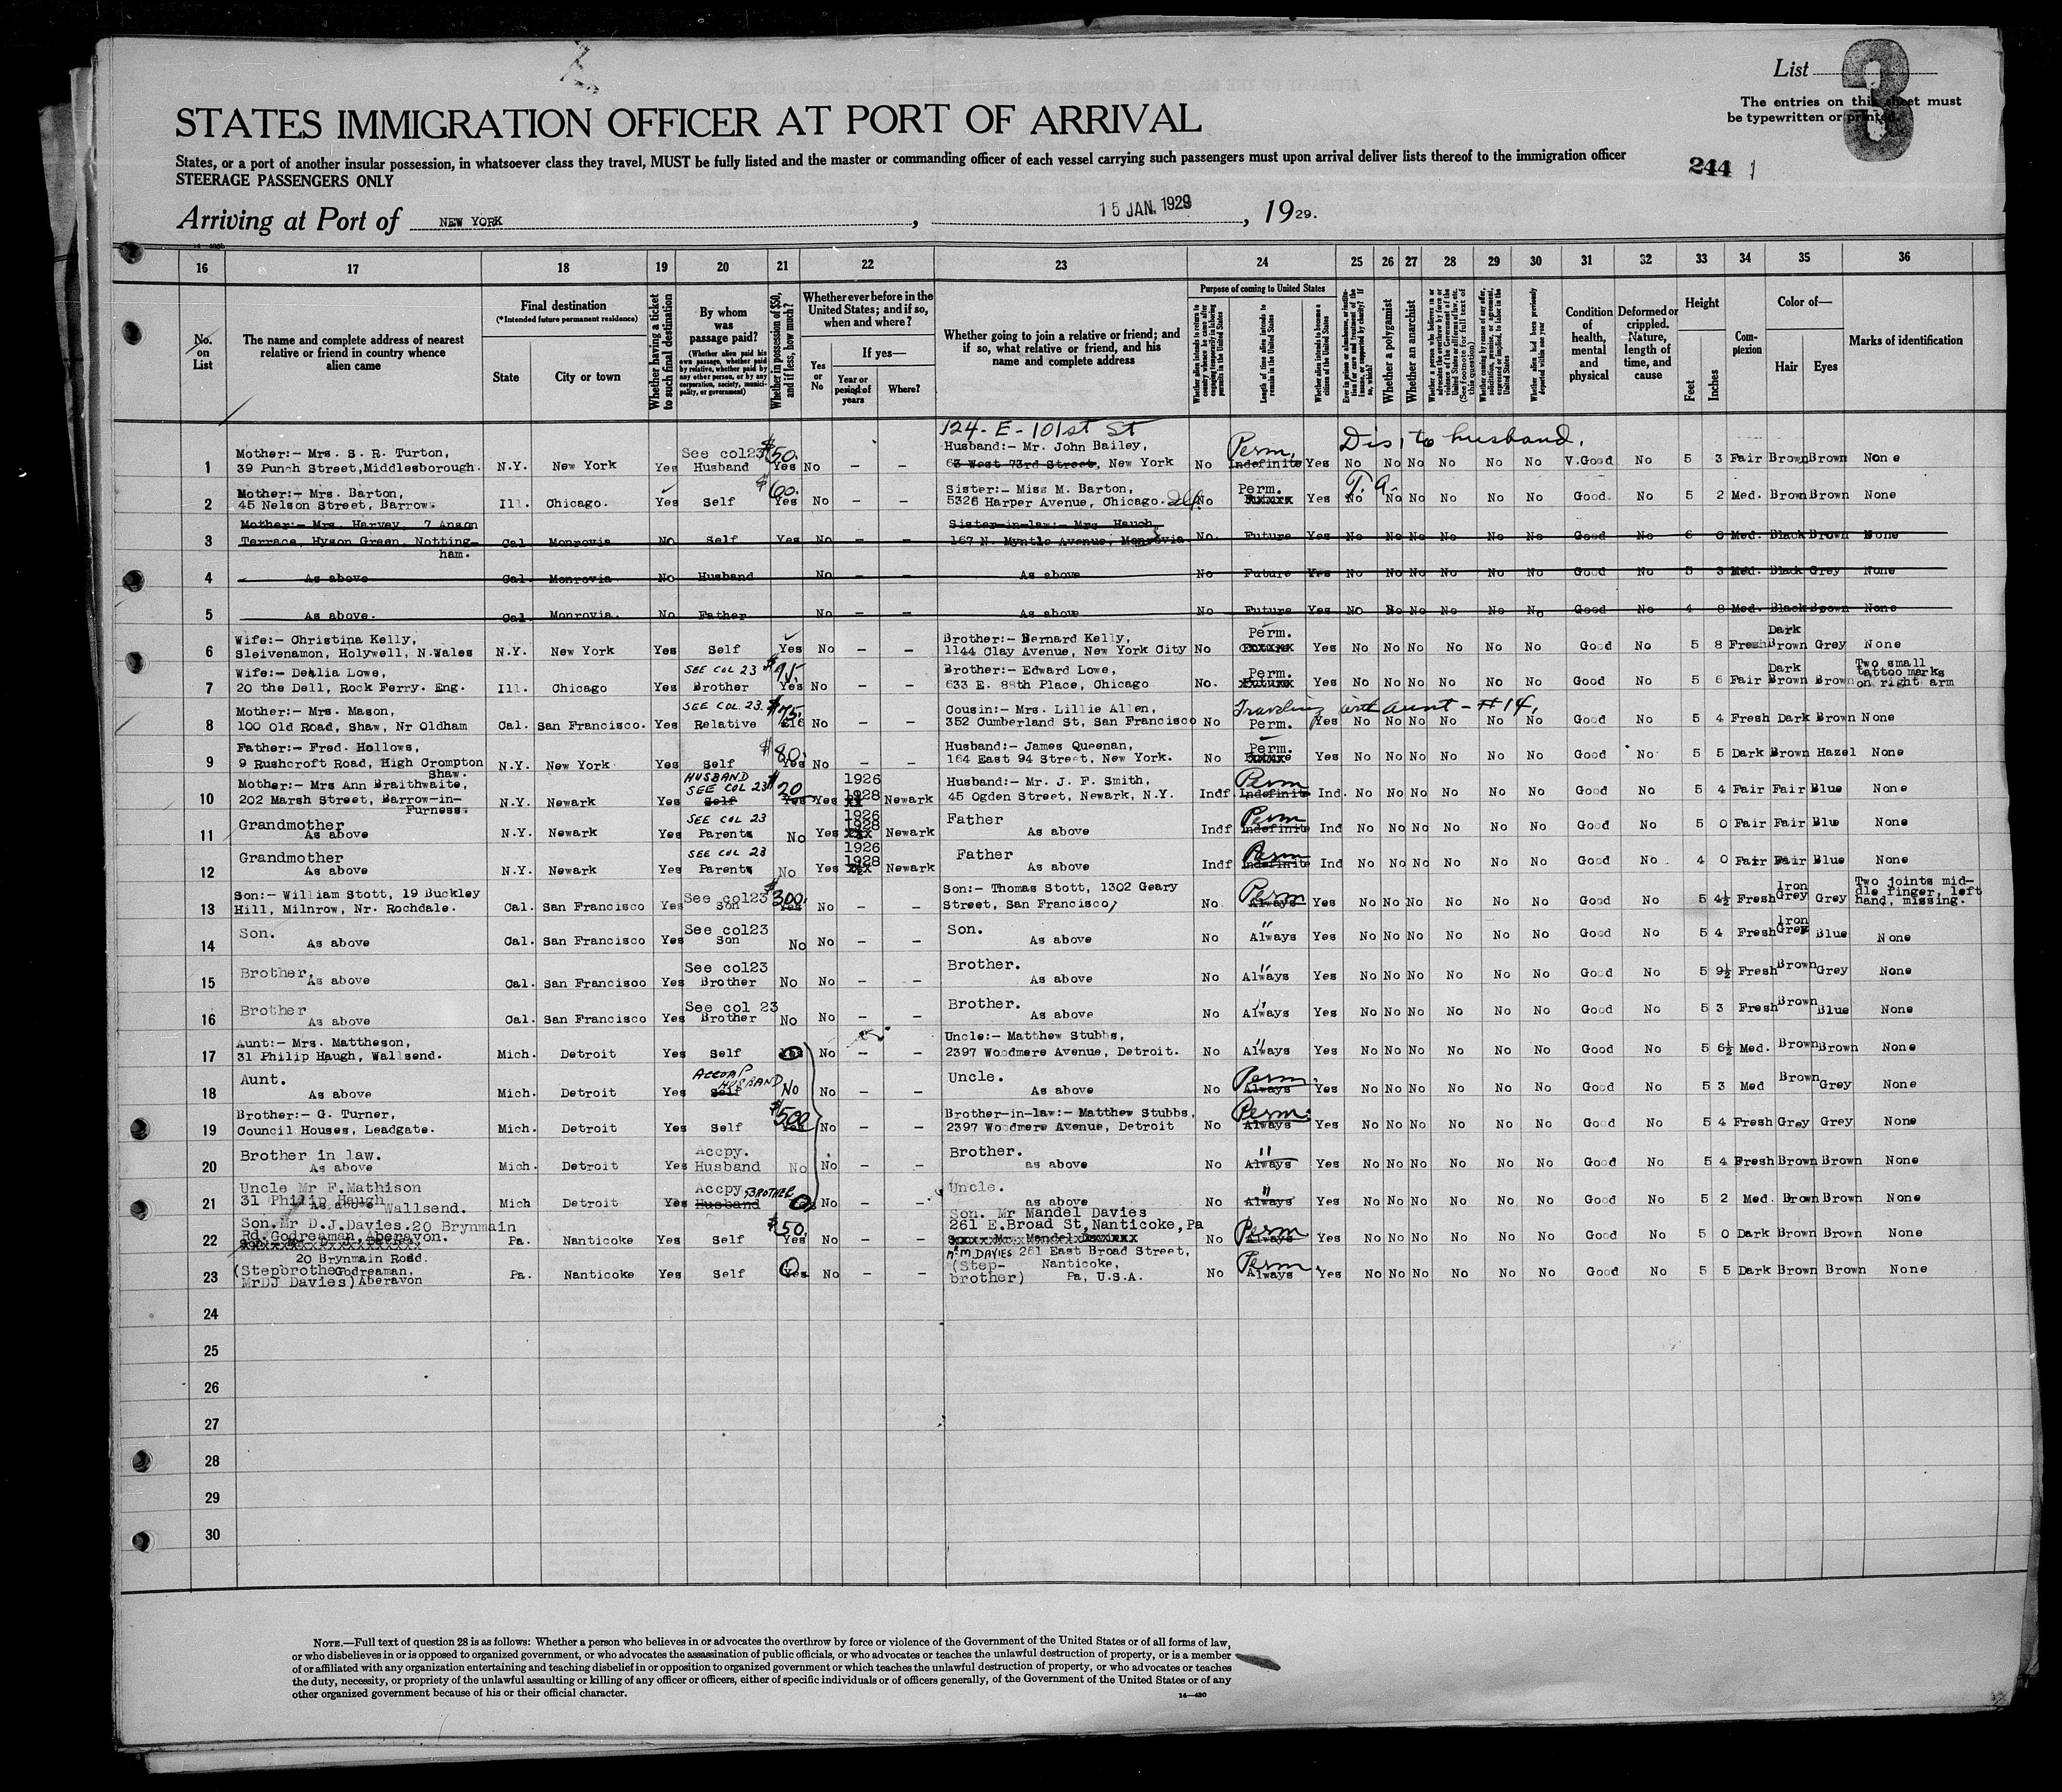 List
3
The entries on this sheet must
be typewritten or printed.
STATES IMMIGRATION OFFICER AT PORT OF ARRIVAL
States, or a port of another insular possession, in whatsoever class they travel, MUST be fully listed and the master or commanding officer of each vessel carrying such passengers must upon arrival deliver lists thereof to the immigration officer
STEERAGE PASSENGERS ONLY
244 1
Arriving at Port of NEW YORK , 15 JAN. 1929 , 1929.
16 17 18 19 20 21 22 23 24 25 26 27 28 29 30 31 32 33 34 35 36
No. on List
The name and complete address of nearest relative or friend in country whence alien came
Final destination
(*Intended future permanent residence)
State City or town
Whether having a ticket to such final destination
By whom was passage paid?
(Whether alien paid his own passage, whether paid by relative, whether paid by any other person, or by any corporation, society, municipality, or government)
Whether in possession of $50, and if less, how much?
Whether ever before in the United States; and if so, when and where?
Yes or No
If yes—
Year or period of years Where?
Whether going to join a relative or friend; and if so, what relative or friend, and his name and complete address
Purpose of coming to United States
Length of time alien intends to remain in the United States
Whether alien intends to become a citizen of the United States
Whether a polygamist
Whether an anarchist
Condition of health, mental and physical
Deformed or crippled. Nature, length of time, and cause
Height
Feet Inches
Complexion
Color of—
Hair Eyes
Marks of identification
124- E - 101st St
1 Mother:- Mrs. S. R. Turton, See col23 $50. Husband:- Mr. John Bailey, Perm. Dis, to husband.
39 Punch Street, Middlesborough. N.Y. New York Yes Husband Yes No - - 63 West 73rd Street, New York No Indefinite Yes No No No No No No V.Good No 5 3 Fair Brown Brown None
2 Mother:- Mrs. Barton, $60. Sister:- Miss M. Barton, Perm.
45 Nelson Street, Barrow. Ill. Chicago. Yes Self Yes No - - 5326 Harper Avenue, Chicago. No Yes No No No No No No Good. No 5 2 Med. Brown Brown None
3 Mother:- Mrs. Harvey, 7 Anson Sister-in-law:- Mrs Hauch,
Terrace, Hyson Green, Nottingham. Cal. Monrovia No Self Yes No - - 167 N. Myntle Avenue, Monrovia No. Future Yes No No No No No No Good No 6 0 Med. Black Brown None
4 As above Cal. Monrovia No Husband No - - As above No Future Yes No No No No No No Good No 5 3 Med. Black Grey None
5 As above. Cal. Monrovia. No Father No - - As above No Future Yes No No No No No No Good No 4 8 Med. Black Brown None
6 Wife:- Christina Kelly, Brother:- Bernard Kelly, Perm. Dark
Sleivenamon, Holywell, N.Wales N.Y. New York Yes Self Yes No - - 1144 Clay Avenue, New York City No Yes No No No No No No Good No 5 8 Fresh Brown Grey None
7 Wife:- Dehlia Lowe, SEE COL 23 $ Brother:- Edward Lowe, Perm. Dark Two small
20 the Dell, Rock Ferry. Eng. Ill. Chicago Yes Brother Yes No - - 633 E. 88th Place, Chicago No. Future Yes No No No No No No Good No 5 6 Fair Brown Brown tattoo marks on right arm
8 Mother:- Mrs. Mason, SEE COL. 23. $75. Cousin:- Mrs. Lillie Allen, Traveling with aunt - #14.
100 Old Road, Shaw, Nr Oldham Cal. San Francisco. Yes Relative No - - 352 Cumberland St, San Francisco No Perm. Yes No No No No No No Good No 5 4 Fresh Dark Brown None
9 Father:- Fred. Hollows, $80. Husband:- James Queenan, Perm.
9 Rushcroft Road, High Crompton Shaw. N.Y. New York Yes Self Yes No - - 164 East 94 Street, New York. No Yes No No No No No No Good No 5 5 Dark Brown Hazel None
10 Mother:- Mrs Ann Braithwaite, HUSBAND SEE COL 23 $20 1926 Husband:- Mr. J. F. Smith, Perm
202 Marsh Street, Barrow-in-Furness. N.Y. Newark Yes Self Yes Yes 1928 Newark 45 Ogden Street, Newark, N.Y. Indf. Indefinite Ind. No No No No No No Good No 5 4 Fair Fair Blue None
11 Grandmother SEE COL 23 1926 Father Perm
As above N.Y. Newark Yes Parents No Yes 1928 Newark As above Indf Indefinite Ind No No No No No No Good No 5 0 Fair Fair Blue None
12 Grandmother SEE COL 23 1926 Father Perm
As above N.Y. Newark Yes Parents No Yes 1928 Newark As above Indf Indefinite Ind No No No No No No Good No 4 0 Fair Fair Blue None
13 Son:- William Stott, 19 Buckley See col23 $300. Son:- Thomas Stott, 1302 Geary Perm Iron Two joints mid-
Hill, Milnrow, Nr. Rochdale. Cal. San Francisco Yes Son Yes No - - Street, San Francisco, No Always Yes No No No No No No Good No 5 4½ Fresh Grey Grey dle finger, left hand, missing.
14 Son. See col23 Son. " Iron
As above Cal. San Francisco Yes Son No No - - As above No Always Yes No No No No No No Good No 5 4 Fresh Grey Blue None
15 Brother, See col23 Brother. "
As above Cal. San Francisco Yes Brother No No - - As above No Always Yes No No No No No No Good No 5 9½ Fresh Brown Grey None
16 Brother See col 23 Brother. "
As above Cal. San Francisco Yes Brother No No - - As above No Always Yes No No No No No No Good No 5 3 Fresh Brown Blue None
17 Aunt:- Mrs. Mattheson, Uncle:- Matthew Stubbs, "
31 Philip Haugh, Wallsend. Mich. Detroit Yes Self 0 No - - 2397 Woodmere Avenue, Detroit. No Always Yes No No No No No No Good No 5 6½ Med. Brown Brown None
18 Aunt. ACCOMP HUSBAND Uncle. Perm.
As above Mich. Detroit Yes Self No No - - As above No Always Yes No No No No No No Good No 5 3 Med Brown Grey None
19 Brother:- G. Turner, $500 Brother-in-law:- Matthew Stubbs, Perm.
Council Houses, Leadgate. Mich. Detroit Yes Self Yes No - - 2397 Woodmere Avenue, Detroit No Always Yes No No No No No No Good No 5 4 Fresh Grey Grey None
20 Brother in law. Accpy. Brother. "
As above Mich. Detroit Yes Husband No No - - as above No Always Yes No No No No No No Good No 5 4 Fresh Brown Brown None
21 Uncle Mr F.Mathison Accpy BROTHER Uncle. "
31 Philip Haugh As above Wallsend. Mich Detroit Yes Husband 0 No - - as above No Always Yes No No No No No No Good No 5 2 Med. Brown Brown None
22 Son.Mr D.J.Davies.20 Brynmain $50. Son. Mr Mandel Davies
Rd.Godreaman,Aberavon. Pa. Nanticoke Yes Self Yes No - - 261 E.Broad St,Nanticoke,Pa No Perm Always Yes No No No No No No Good No 5 0 Dark Brown Brown None
23 20 Brynmain Road. Mr M. DAVIES 261 East Broad Street,
(Stepbrother Godreaman, Nanticoke, Perm.
MrDJ Davies) Aberavon Pa. Nanticoke Yes Self 0 Yes No - - (Step-brother) Pa, U.S.A. No Always Yes No No No No No No Good No 5 5 Dark Brown Brown None
24
25
26
27
28
29
30
NOTE.—Full text of question 28 is as follows: Whether a person who believes in or advocates the overthrow by force or violence of the Government of the United States or of all forms of law,
or who disbelieves in or is opposed to organized government, or who advocates the assassination of public officials, or who advocates or teaches the unlawful destruction of property, or is a member
of or affiliated with any organization entertaining and teaching disbelief in or opposition to organized government or which teaches the unlawful destruction of property, or who advocates or teaches
the duty, necessity, or propriety of the unlawful assaulting or killing of any officer or officers, either of specific individuals or of officers generally, of the Government of the United States or of any
other organized government because of his or their official character.
14—430